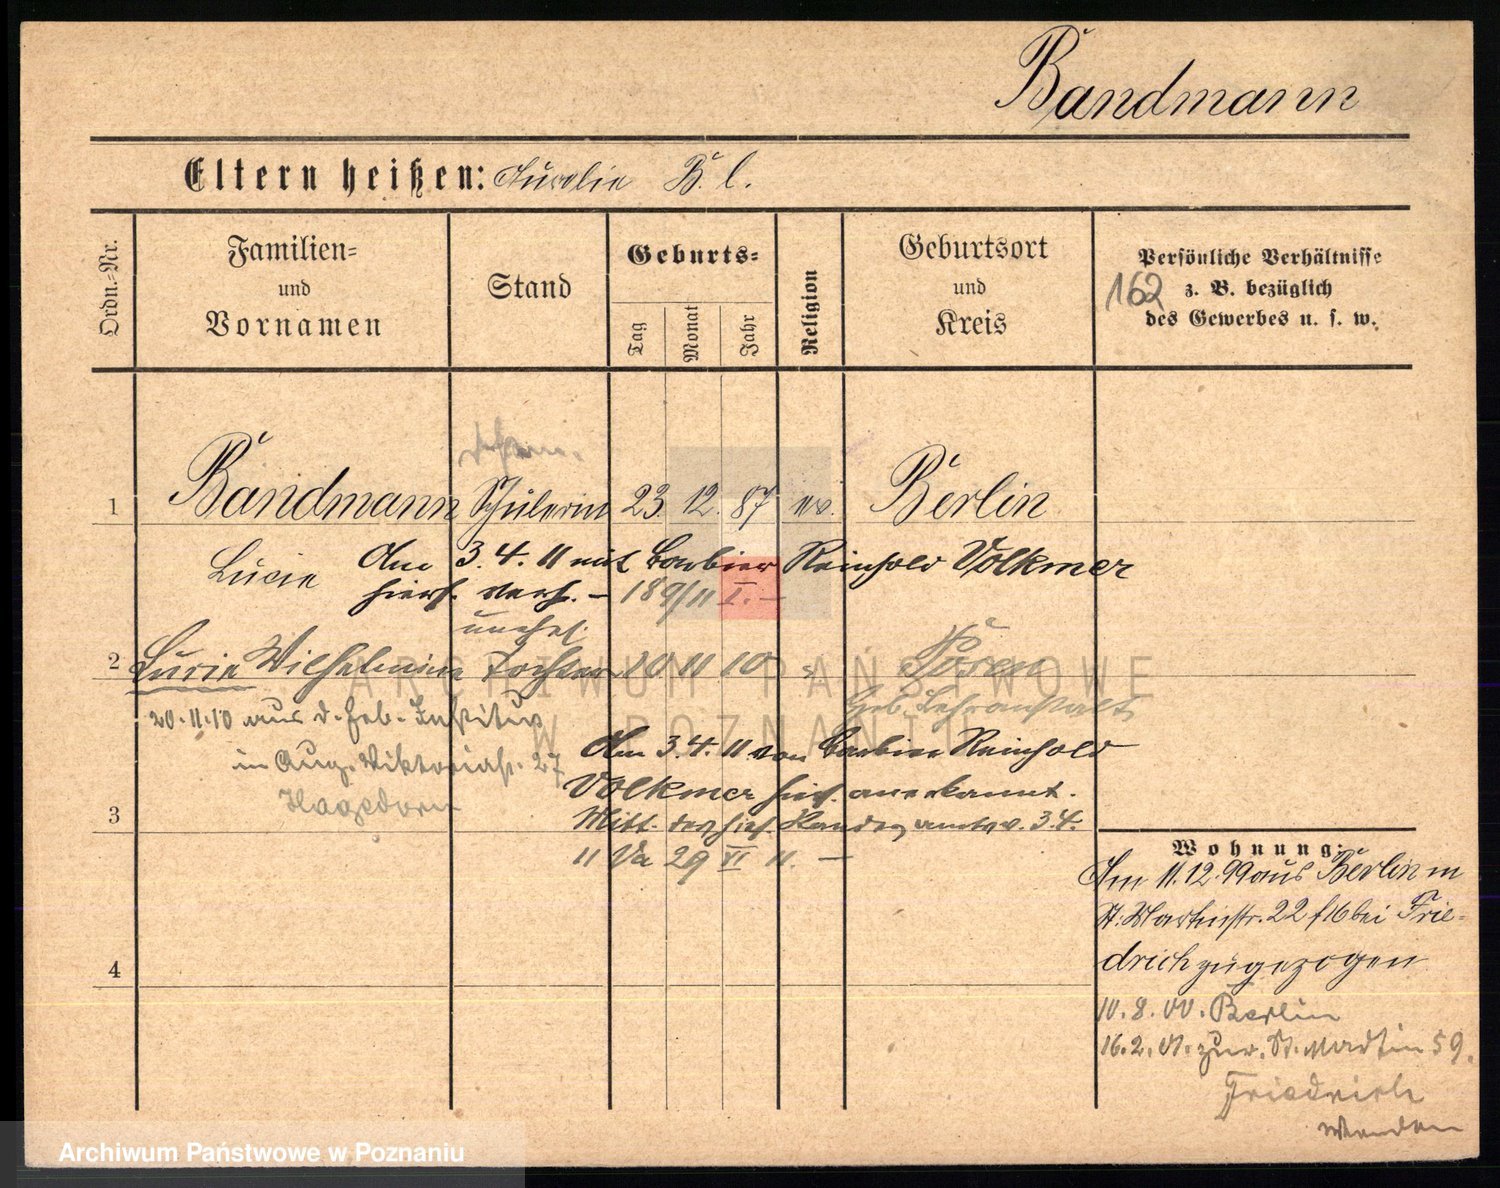 Bandmann
Eltern heißen: Aurelie B. l.
Ordn.-Nr.
Familien-
und
Vornamen
Stand
Geburts-
Tag
Monat
Jahr
Religion
Geburtsort
und
Kreis
Persönliche Verhältnisse
z. B. bezüglich
des Gewerbes u. s. w.
162
1 Bandmann Schülerin 23. 12. 87 ev. Berlin
Lucie Am 3. 4. 11 mit Barbier Reinhold Volkmer
hiers. verh. – 189/11 I. –
unehel.
2 Lucie Wilhelmine Tochter 10 11 10 Posen
Heb. Lehranstalt
20.11.10 aus d. Heb. Institut
in Aug. Viktoriastr. 27
Hagedorn
Am 3. 4. 11 von Barbier Reinhold
Volkmer hier anerkannt.
3 Mitt. des hies. Standesamts v. 3.4.
11 29 VI 11. –
4
Wohnung:
Am 11.12.99 aus Berlin in
St. Martinstr. 22 bei Frie-
drich zugezogen
10. 8. 00. Berlin
16. 2. 01. zur. St. Martin 59.
Friedrich
wenden
ARCHIWUM PAŃSTWOWE
W POZNANIU
Archiwum Państwowe w Poznaniu